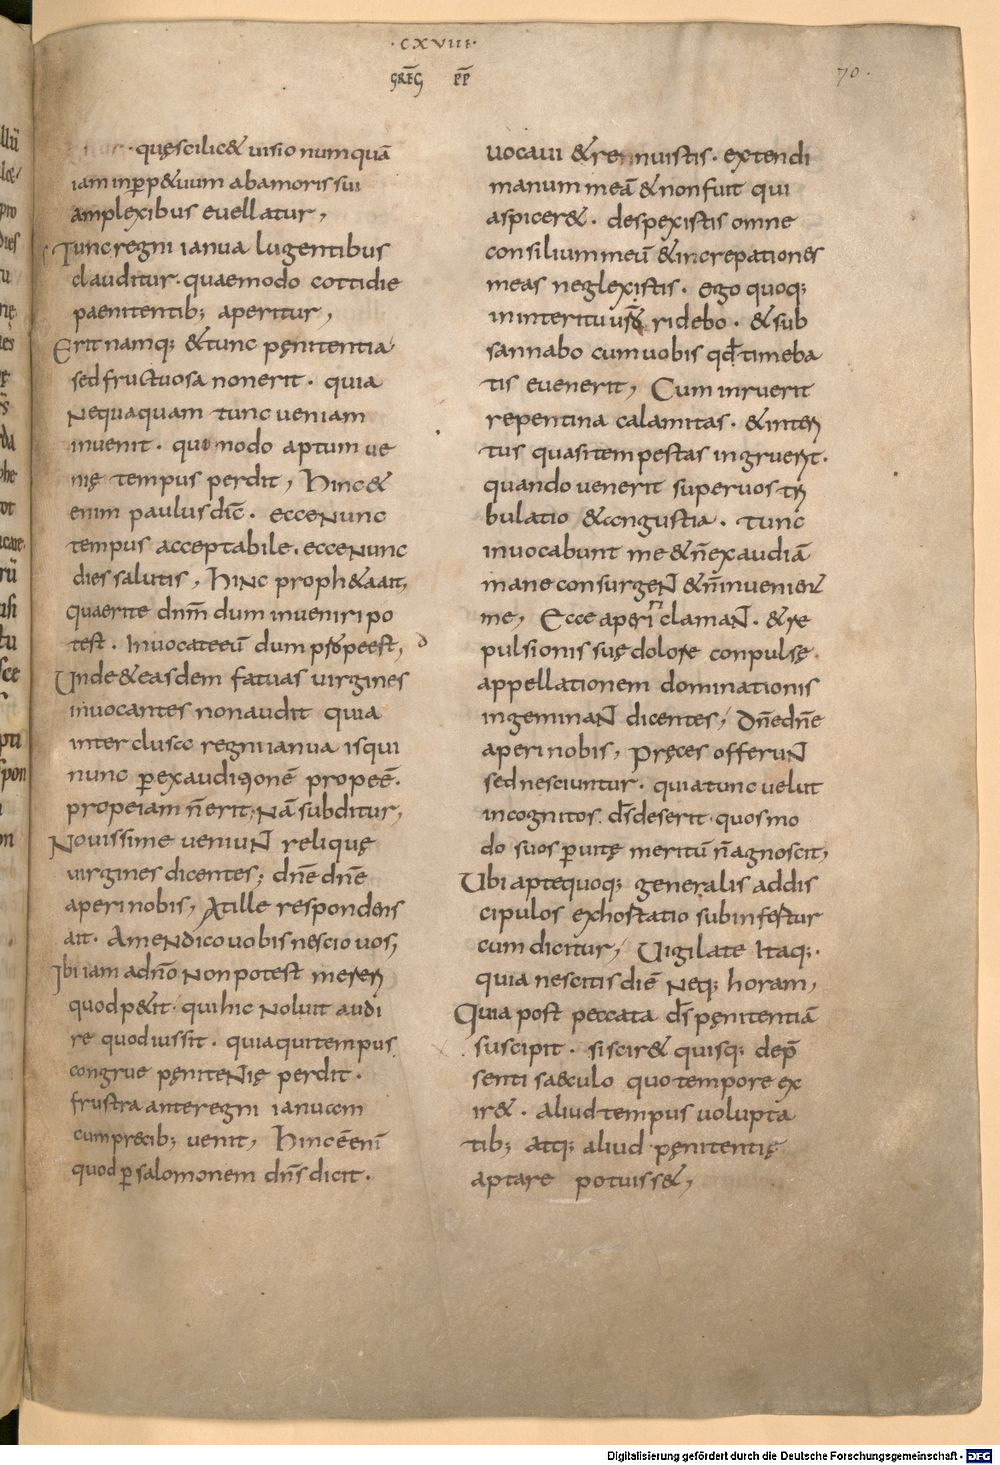 ·CXVIII·
GREG̅ PP̅
70.
· quęscilic& uisio numquā
iam inp̲p&uum abamoris sui
amplexibus euellatur,
Tunc regni ianua lugentibus
clauditur· quaemodo cottidie
paenitentib; aperitur,
Erit namq; &tunc pęnitentia
sed fructuosa non erit· quia
Nequaquam tunc ueniam
inuenit· quomodo aptum ue
nię tempus perdit, Hinc &
enim paulus dic̅· ecce Nunc
tempus acceptabile· ecce Nunc
dies salutis, HiNc proph&a ait,
quaerite dnm̅ dum inueniri po
test· Inuocate eū dum prope est,
Unde & easdem fatuas uirgines
inuocantes non audit quia
inter clusa regni ianua is qui
nunc p̲ exauditionē prope ē·
prope iam n̅ erit, Nā subditur,
Nouissime ueniuN̅ reliquę
uirgines dicentes; dn̅e dn̅e
aperi nobis, At ille respondens
ait· AmeN dico uobis nescio uos,
Ibi iam a dn̅o Non potest mereri
quod p&it· qui hic Noluit audi
re quod iussit· quia qui tempus
congrue pęniteNtię perdit·
frustra ante regni ianuam
cum precib; uenit, Hinc ē enī
quod p̲ salomonem dn̅s dicit·
uocaui & rennuistis· extendi
manum meā & non fuit qui
aspicer&· despexistis omne
consilium meū & increpationes
meas neglexistis· ego quoq;
in interitu ur̅o ridebo· & sub
sannabo cum uobis qd̅ timeba
tis euenerit, Cum inruerit
repentina calamitas· & interi
tus quasi tempestas ingruerit·
quando uenerit super uos tri
bulatio & angustia· tunc
inuocabunt me & n̅ exaudiā
mane consurgeN̅ & n̅ inuenient
me, Ecce aperiri clamaN̅· & re
pulsionis suę dolore conpulsę·
appellationem dominationis
ingeminaN̅ dicentes, Dn̅e dn̅e
aperi nobis, Pręces offeruN̅
sed nesciuntur· quia tunc uelut
incognitos· ds̅ deserit· quos mo
do suos p̲ uitę meritū n̅ agnoscit,
Ubi apte quoq; generalis ad dis
cipulos exhostatio subinfestur
cum dicitur, Uigilate Itaq;·
quia nescitis diē Neq; horam,
Quia post peccata ds̅ pęnitentiā
suscipit· si scir& quisq; de p̅
senti saeculo quo tempore ex
ir&· aliud tempus uolupta
tib; atq; aliud pęnitentię
aptare potuiss&,
Digitalisierung gefördert durch die Deutsche Forschungsgemeinschaft - DFG